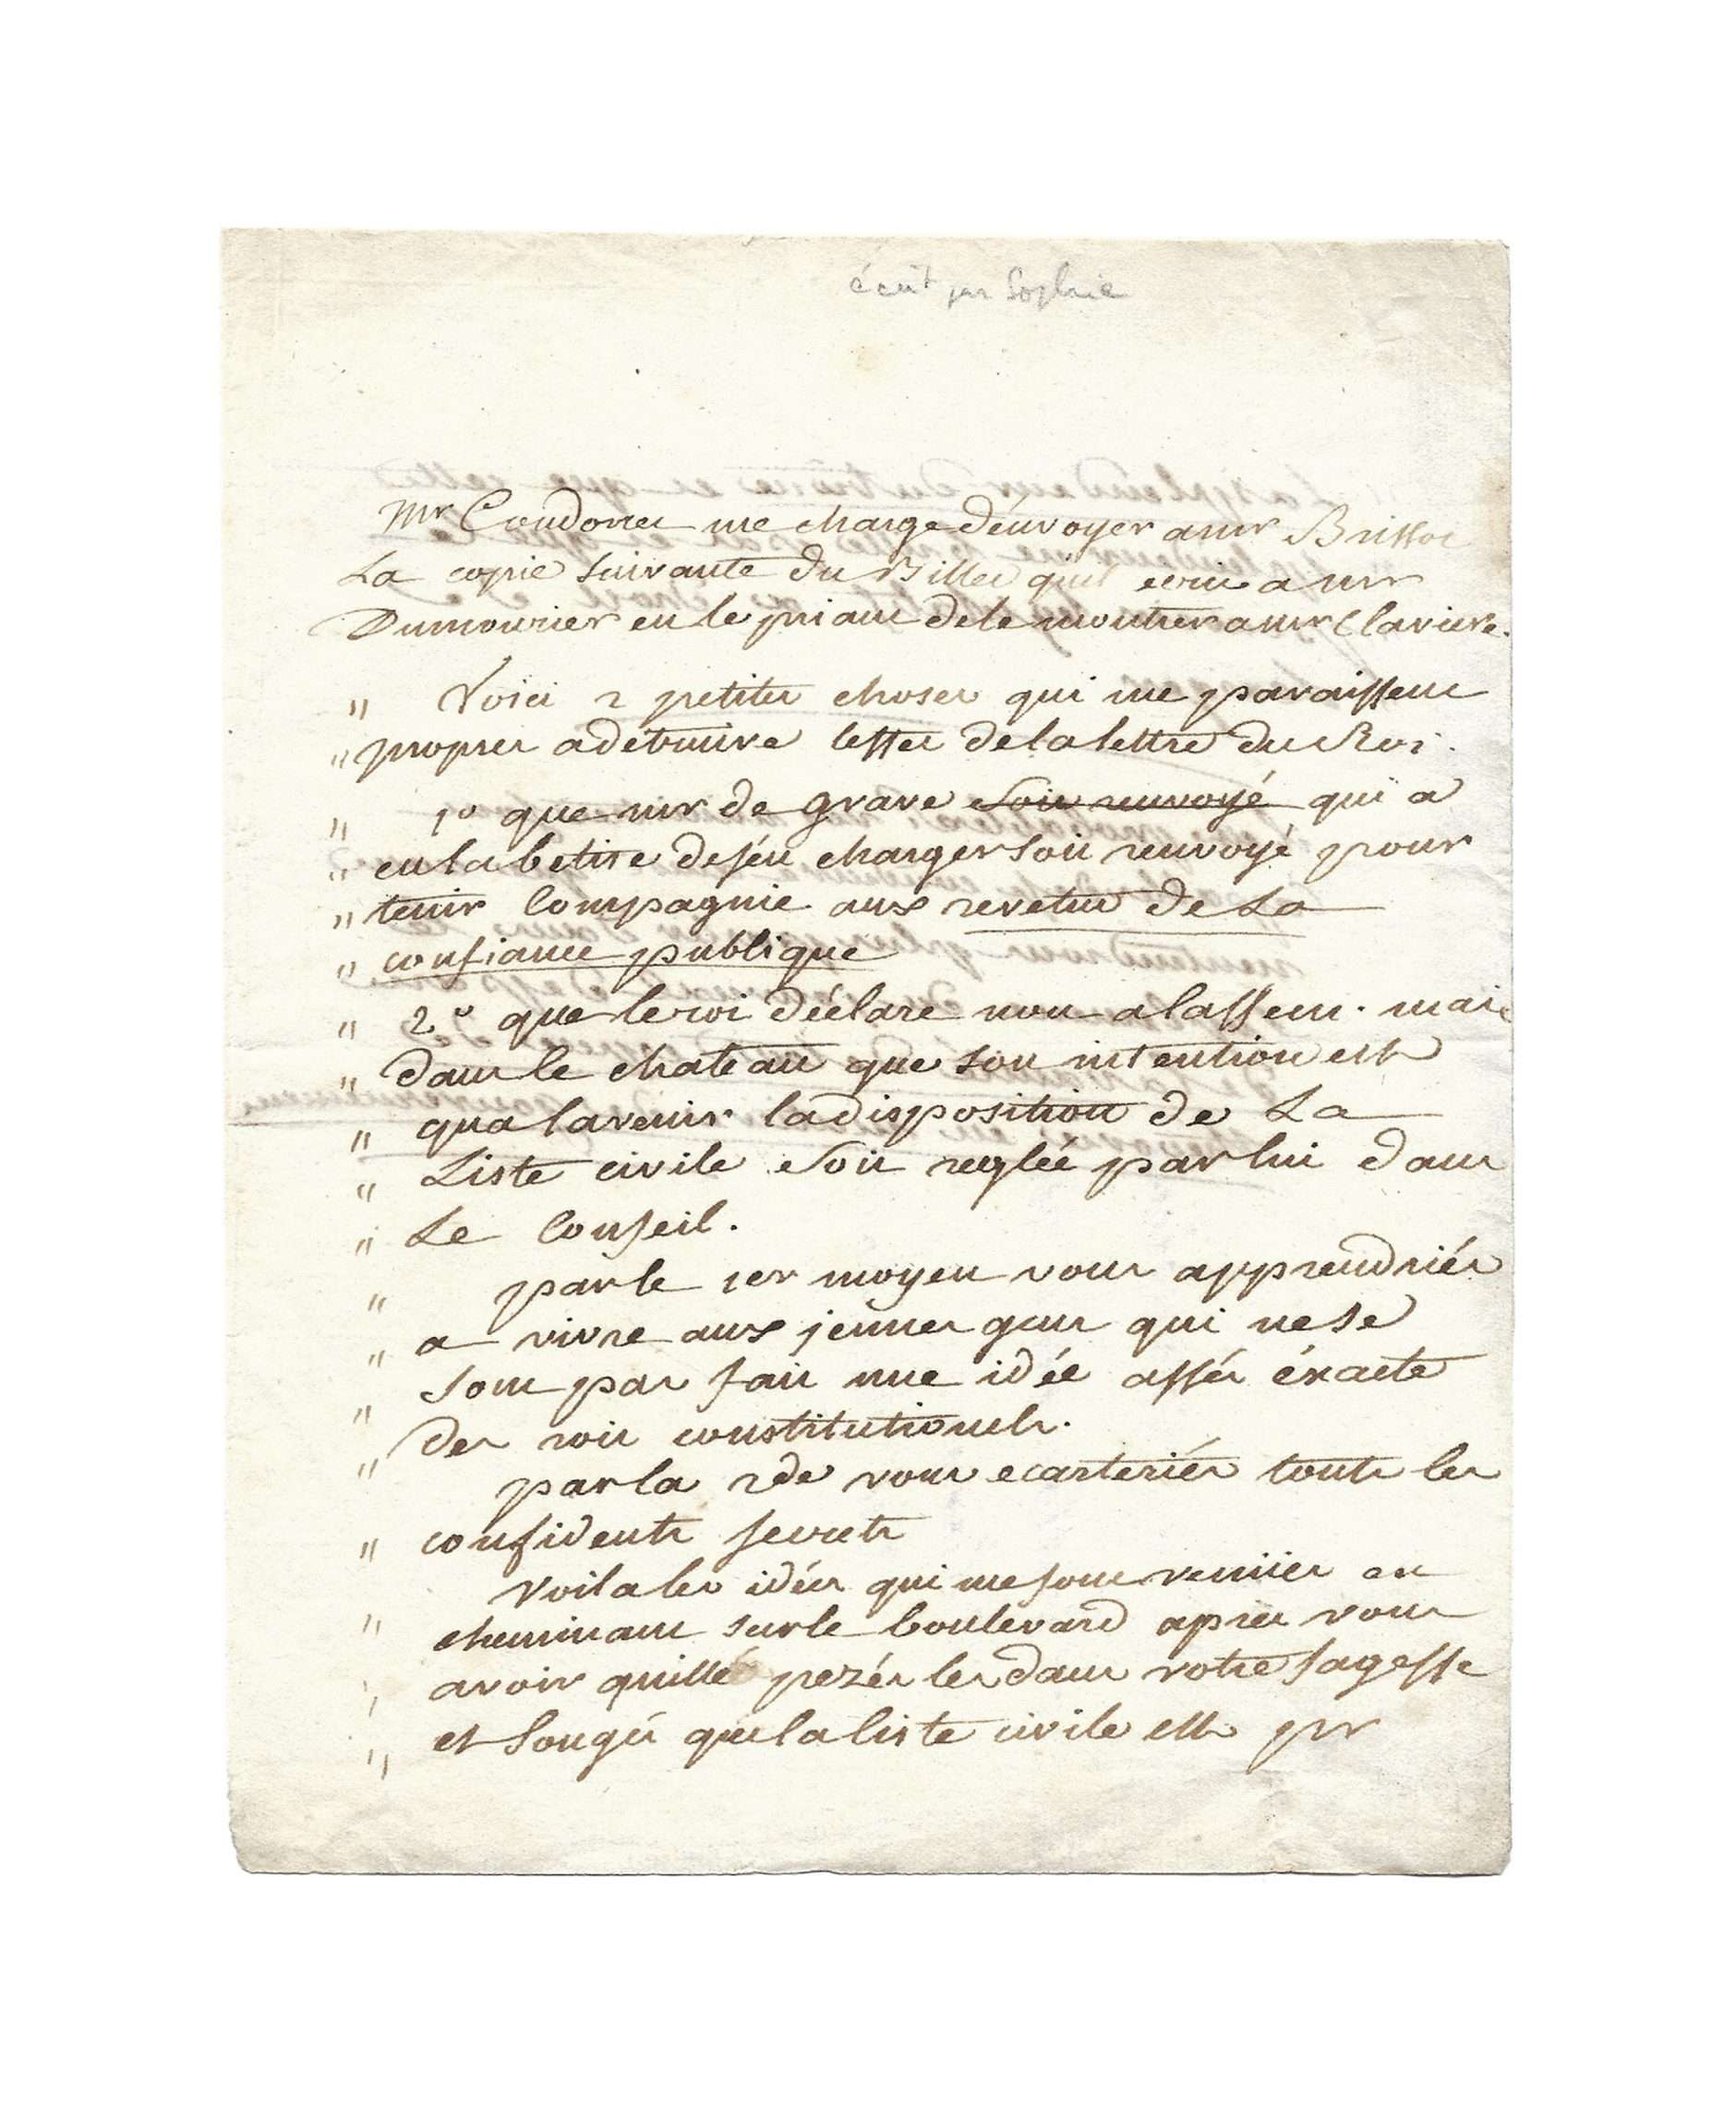 écrit par Sophie
Mr Condorcet me charge d'énvoyer a mr Brissot
La copie suivante du Billet quil ecrit a mr
Dumourier en le priant de le montrer a mr Claviere.
" Voici 2 petites choses qui me paraissent
" propres a détruire leffet de la lettre du Roi.
" 1° que mr de grave soit renvoyé qui a
" eu la betise de sén charger soit renvoyé pour
" tenir compagnie aux revetus de La
" confiance publique
" 2° que le roi déclare non a lassem. mais
" dans le chateau que son intention est
" qua lavenir la disposition de La
" Liste civile soit reglée par lui dans
" Le Conseil.
" par le 1er moyen vous apprendriés
" a vivre aux jeunes gens qui ne se
" sont pas fait une idée assés éxacte
" des rois constitutionels.
" par la 2de vous ecarteriés touts les
" confidents secrets
Voila les idées qui me sont venües en
" cheminant sur le boulevard apres vous
" avoir quitté pezés les dans votre sagesse
" et songés que la liste civile est pr